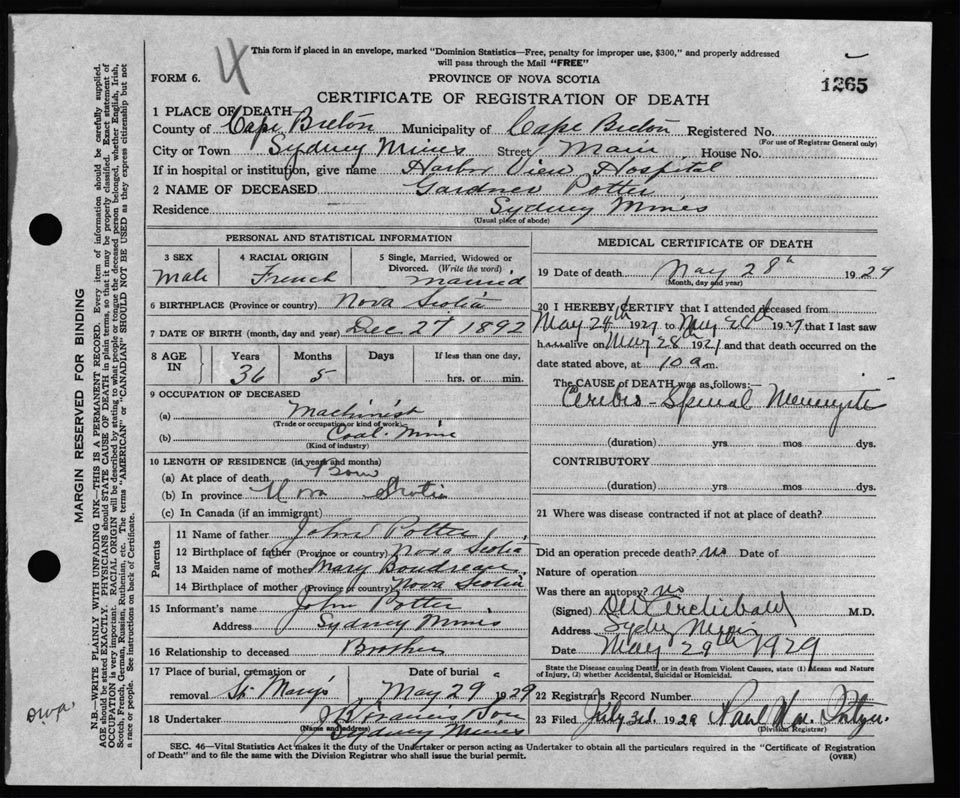 This form if placed in an envelope, marked "Dominion Statistics—Free, penalty for improper use, $300," and properly addressed
will pass through the Mail "FREE"
FORM 6.
PROVINCE OF NOVA SCOTIA
1265
CERTIFICATE OF REGISTRATION OF DEATH
1 PLACE OF DEATH
County of Cape Breton Municipality of Cape Breton Registered No.
(For use of Registrar General only)
City or Town Sydney Mines Street Main House No.
If in hospital or institution, give name Harbor View Hospital
2 NAME OF DECEASED Gardner Potter
Residence Sydney Mines
(Usual place of abode)
PERSONAL AND STATISTICAL INFORMATION
3 SEX 4 RACIAL ORIGIN 5 Single, Married, Widowed or
Divorced. (Write the word)
Male French Married
6 BIRTHPLACE (Province or country) Nova Scotia
7 DATE OF BIRTH (month, day and year) Dec 27 1892
8 AGE IN Years Months Days If less than one day,
36 5 hrs. or min.
9 OCCUPATION OF DECEASED
(a) Machinist
(Trade or occupation or kind of work)
(b) Coal Mine
(Kind of industry)
10 LENGTH OF RESIDENCE (in years and months)
(a) At place of death Born
(b) In province Nova Scotia
(c) In Canada (if an immigrant)
Parents
11 Name of father John Potter
12 Birthplace of father (Province or country) Nova Scotia
13 Maiden name of mother Mary Boudreau
14 Birthplace of mother (Province or country) Nova Scotia
15 Informant's name John Potter
Address Sydney Mines
16 Relationship to deceased Brother
17 Place of burial, cremation or Date of burial
removal St. Mary's May 29 1929
18 Undertaker J Francis Son
(Name and address) Sydney Mines
MEDICAL CERTIFICATE OF DEATH
19 Date of death May 28th 1929
(Month, day and year)
20 I HEREBY CERTIFY that I attended deceased from
May 1929 to May 1929 that I last saw
h alive on May 28 1929 and that death occurred on the
date stated above, at 10 a m.
The CAUSE OF DEATH was as follows:
Cerebro-Spinal Meningitis
(duration) yrs mos dys.
CONTRIBUTORY
(duration) yrs mos dys.
21 Where was disease contracted if not at place of death?
Did an operation precede death? no Date of
Nature of operation
Was there an autopsy? no
(Signed) Archibald M.D.
Address Sydney Mines
Date May 29th 1929
State the Disease causing Death, or in death from Violent Causes, state (1) Means and Nature
of Injury, (2) whether Accidental, Suicidal or Homicidal.
22 Registrar's Record Number
23 Filed July 3rd. 1929
(Division Registrar)
SEC. 46—Vital Statistics Act makes it the duty of the Undertaker or person acting as Undertaker to obtain all the particulars required in the "Certificate of Registration
of Death" and to file the same with the Division Registrar who shall issue the burial permit.
(OVER)
MARGIN RESERVED FOR BINDING
N.B.—WRITE PLAINLY WITH UNFADING INK—THIS IS A PERMANENT RECORD. Every item of information should be carefully supplied.
AGE should be stated EXACTLY. PHYSICIANS should STATE CAUSE OF DEATH in plain terms, so that it may be properly classified. Exact statement of
OCCUPATION is very important. RACIAL ORIGIN will be described by stating to what people or tongue the deceased person belonged, whether English, Irish,
Scotch, French, German, Russian, Ruthenian, etc. The terms "AMERICAN" or "CANADIAN" SHOULD NOT BE USED as they express citizenship but not
a race or people. See instructions on back of Certificate.